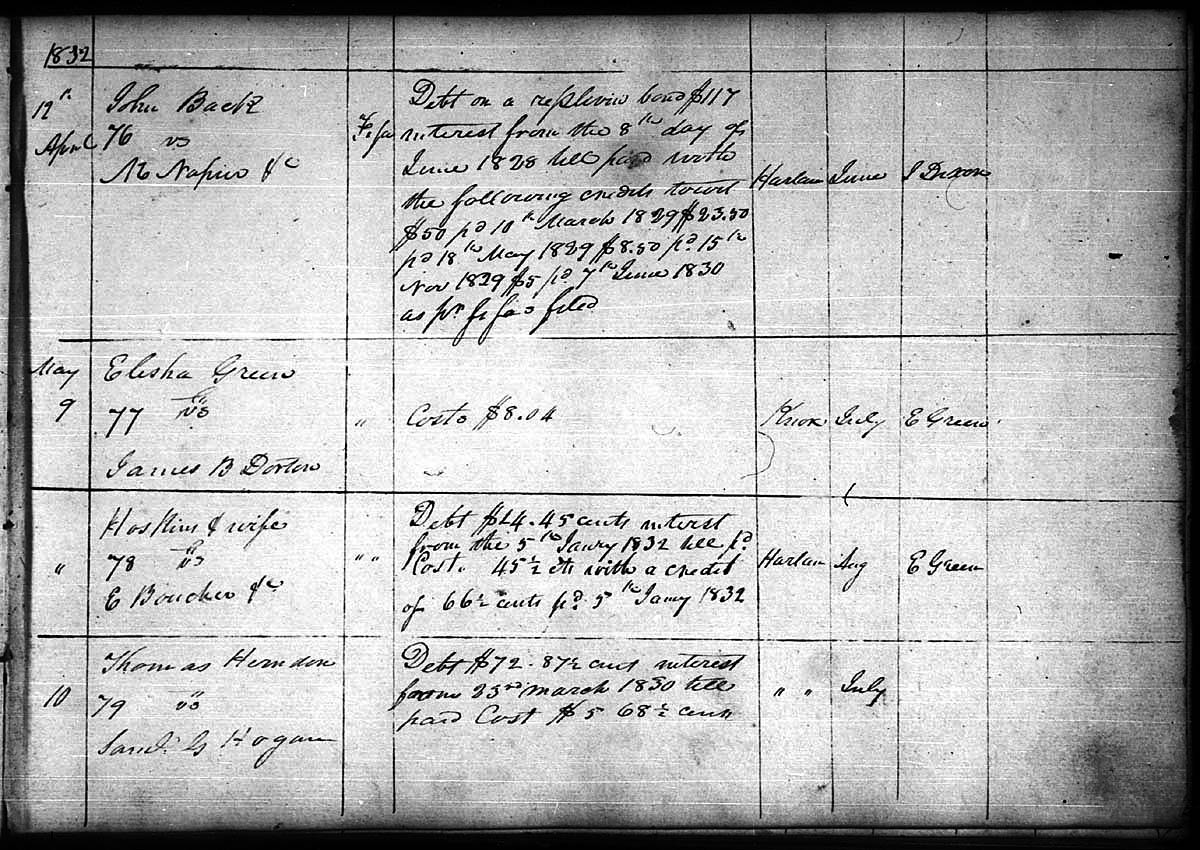 1832
12th April
John Back
76 vs
Mc Napier &c
Fi fa
Debt on a replevin bond $117
interest from the 8th day of
June 1828 till paid with
the following credits towit
$50 pd 10th March 1829 $23.50
pd 18th May 1829 $8.50 pd 15th
Nov 1829 $5 pd 7th June 1830
as pr fi fas filed
Harlan June J Dixon
May 9
Elisha Green
77 vs
James B Dorton
"
Costs $8.04
Knox July E Green
"
Hoskins & wife
78 vs
E Boucher &c
" "
Debt $14.45 cents interest
from the 5th Janry 1832 till pd
Cost. 45½ cts with a credit
of 66½ cents pd 5th Jany 1832
Harlan Aug E Green
10
Thomas Herndon
79 vs
G Hogan
Debt $72.87½ cents interest
from 23rd march 1830 till
paid Cost $5 68½ cents
" " July